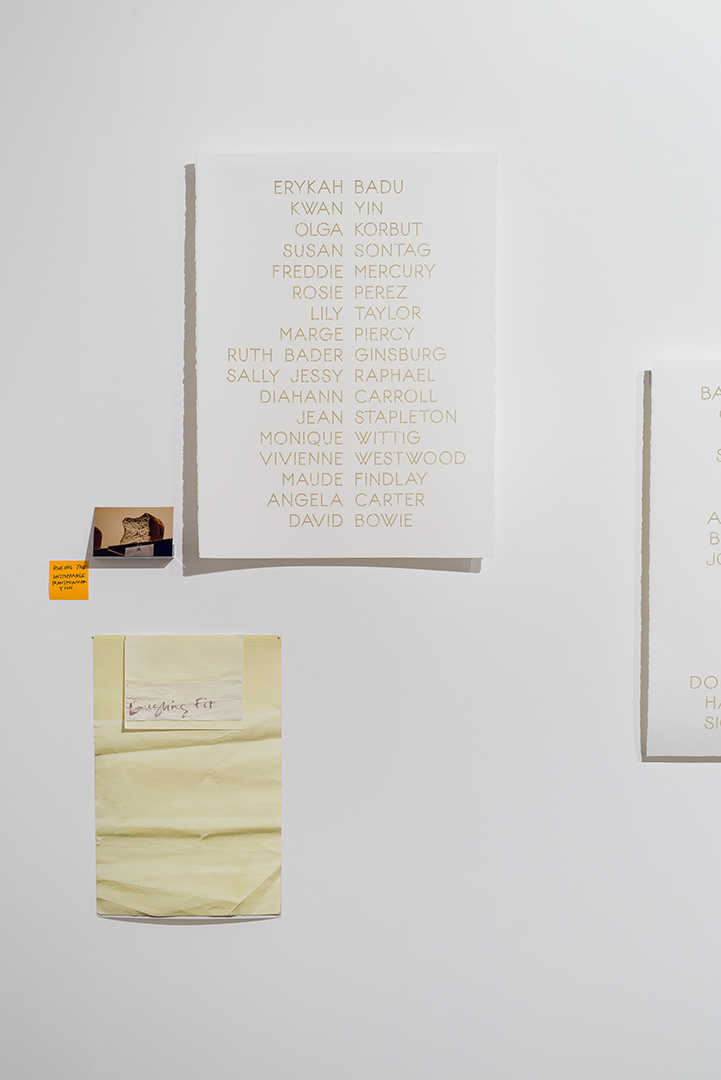 ERYKAH BADU
KWAN YIN
OLGA KORBUT
SUSAN SONTAG
FREDDIE MERCURY
ROSIE PEREZ
LILY TAYLOR
MARGE PIERCY
RUTH BADER GINSBURG
SALLY JESSY RAPHAEL
DIAHANN CARROLL
JEAN STAPLETON
MONIQUE WITTIG
VIVIENNE WESTWOOD
MAUDE FINDLAY
ANGELA CARTER
DAVID BOWIE
UNSTOPPABLE
Laughing Fit
BA
S
A
B
JO
DO
HA
SI